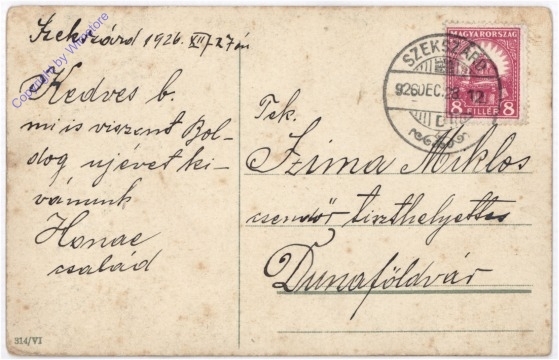 Szekszárd 1926. XII/27én
Kedves b.
mi is viszont Bol-
dog ujévet ki-
vánunk
család
Copyright by WHstore
MAGYARORSZÁG
8 FILLÉR 8
SZEKSZÁRD
926 DEC. 28. 12
Tek.
Szima Miklos
csendőr tiszthelyettes
Dunaföldvár
314/VI